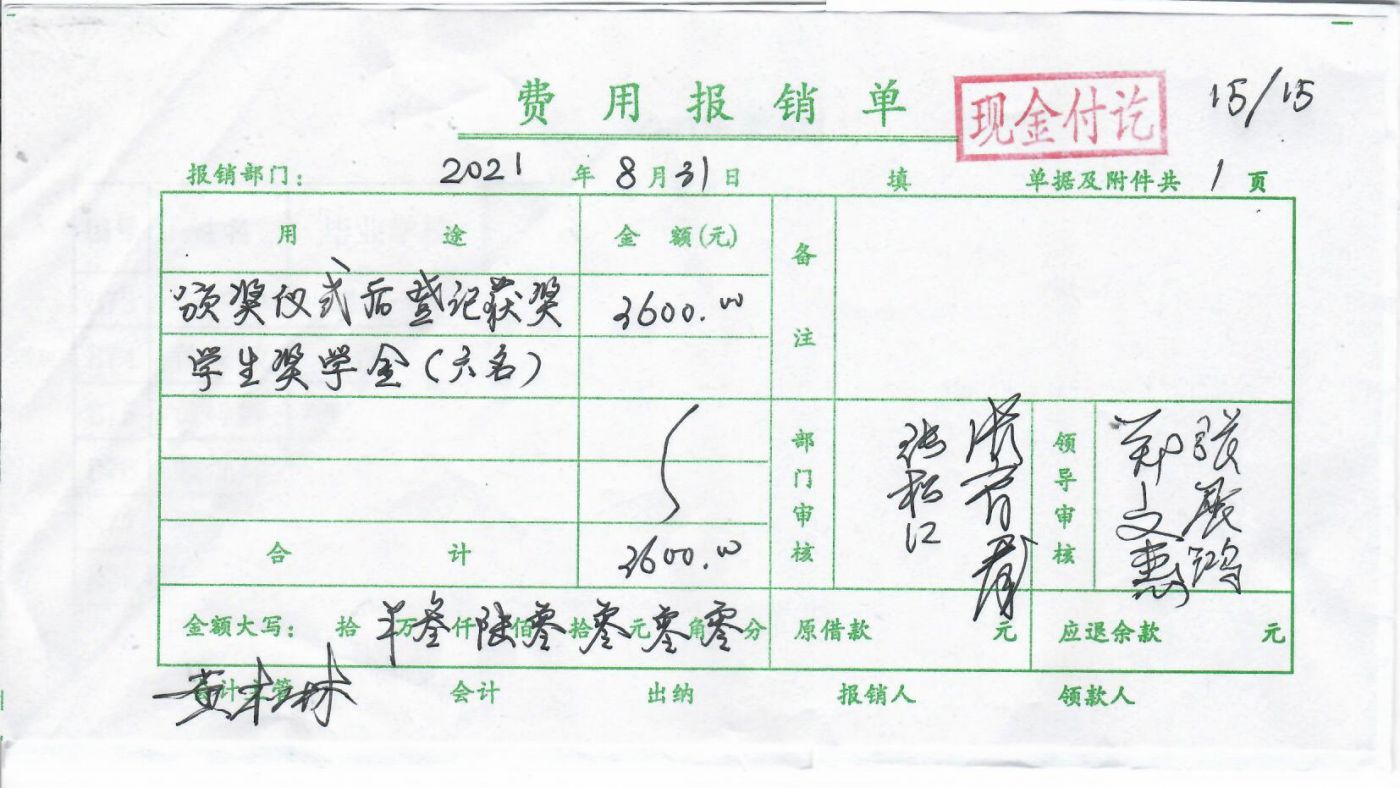 费用报销单
现金付讫
15/15
报销部门： 2021 年 8 月 31 日 填 单据及附件共 1 页
用途 金额(元) 备注
颁奖仪式后登记获奖 3600.00
学生奖学金（六名）
合计 3600.00
部门审核 张松江 领导审核 郑文惠 张展鸿
金额大写： 拾 万 叁仟 陆佰 零拾 零元 零角 零分 原借款 元 应退余款 元
会计主管 会计 出纳 报销人 领款人